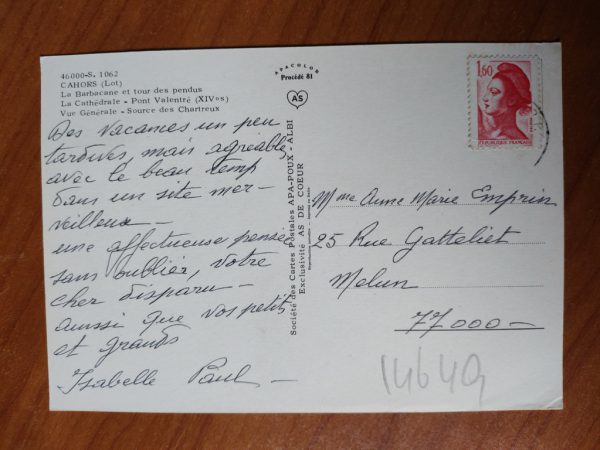 46000-S. 1062
CAHORS (Lot)
La Barbacane et tour des pendus
La Cathédrale - Pont Valentré (XIVes)
Vue Générale - Source des Chartreux
APACOLOR
Procédé 81
AS
Société des Cartes Postales APA-POUX - ALBI
Exclusivité AS DE COEUR
1,60
REPUBLIQUE FRANÇAISE
Des Vacances un peu
tardives, mais agréable,
avec le beau temp
dans un site mer-
veilleux -
une affectueuse pensée
sans oublier, votre
cher disparu -
aussi que vos petits
et grands
Isabelle Paul -
Mme Anne Marie Emprin
25 Rue Gatteliet
Melun
77000 -
14649